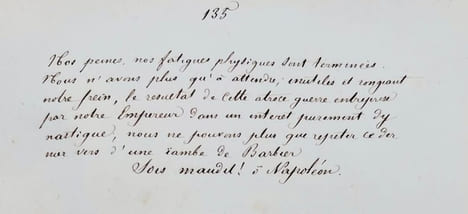 135
Nos peines, nos fatigues physiques sont terminées.
Nous n'avons plus qu'à attendre, inutiles et rongeant
notre frein, le resultat de cette atroce guerre entreprise
par notre Empereur dans un interet purement dy
nastique, nous ne pouvons plus que repeter ce der
nier vers d'une iambe de Barbier
Sois maudit! ô Napoléon.